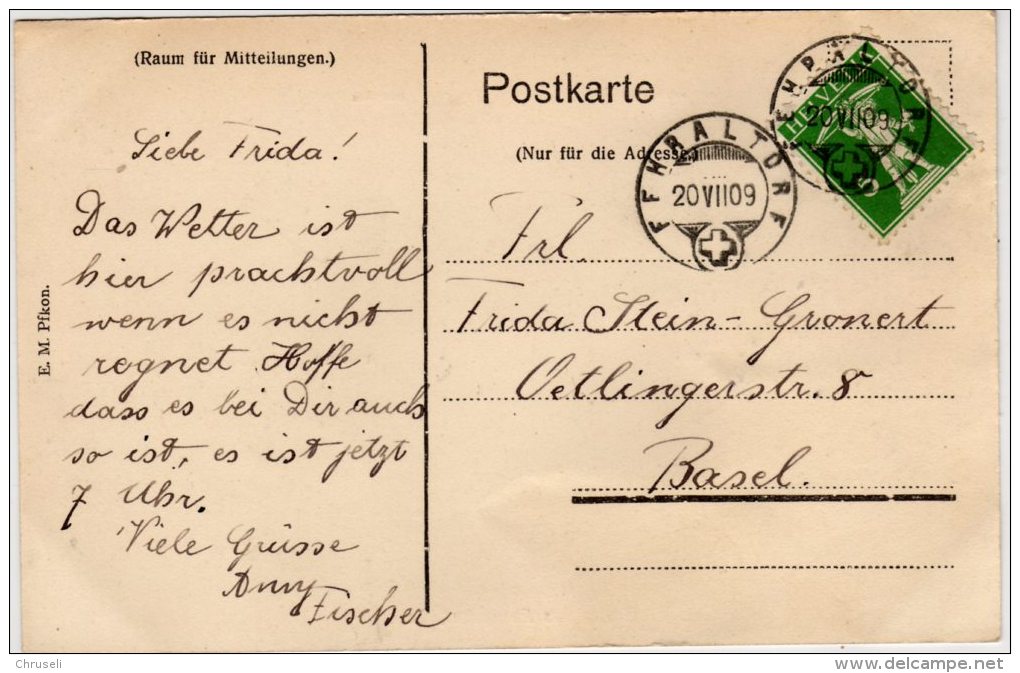 (Raum für Mitteilungen.)
Liebe Frida!
Das Wetter ist
hier prachtvoll
wenn es nicht
regnet. Hoffe
dass es bei Dir auch
so ist, es ist jetzt
7 Uhr.
Viele Grüsse
Anny
Fischer
E. M. Pfkon.
Postkarte
(Nur für die Adresse.)
FEHRALTORF
20 VII 09
FEHRALTORF
20 VII 09
HELVE
Frl.
Frida Stein-Gronert
Oetlingerstr. 8
Basel.
Chruseli
www.delcampe.net